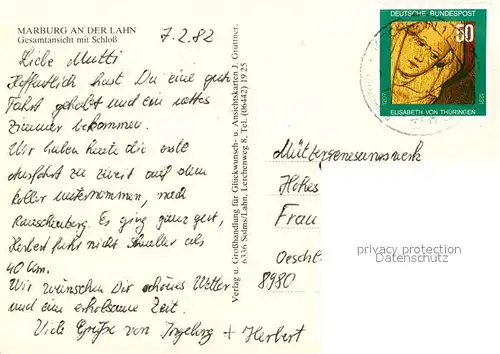 MARBURG AN DER LAHN
Gesamtansicht mit Schloß
7.2.82
Liebe Mutti
Hoffentlich hast Du eine gute
Fahrt gehabt und ein nettes
Zimmer bekommen.
Wir haben heute die erste
Ausfahrt zu zweit auf dem
Roller unternommen, nach
Rauschenberg. Es ging ganz gut,
Herbert fuhr nicht schneller als
40 km.
Wir wünschen Dir schönes Wetter
und eine erholsame Zeit.
Viele Grüße von Ingeborg + Herbert
Verlag u. Großhandlung für Glückwunsch- u. Ansichtskarten J. Grüttner,
6336 Solms/Lahn, Lerchenweg 8, Tel. (06442) 19 25
DEUTSCHE BUNDESPOST
50
1231
ELISABETH VON THÜRINGEN
Müttergenesungswerk
Hohes
Frau
Oeschl
8980
privacy protection
Datenschutz